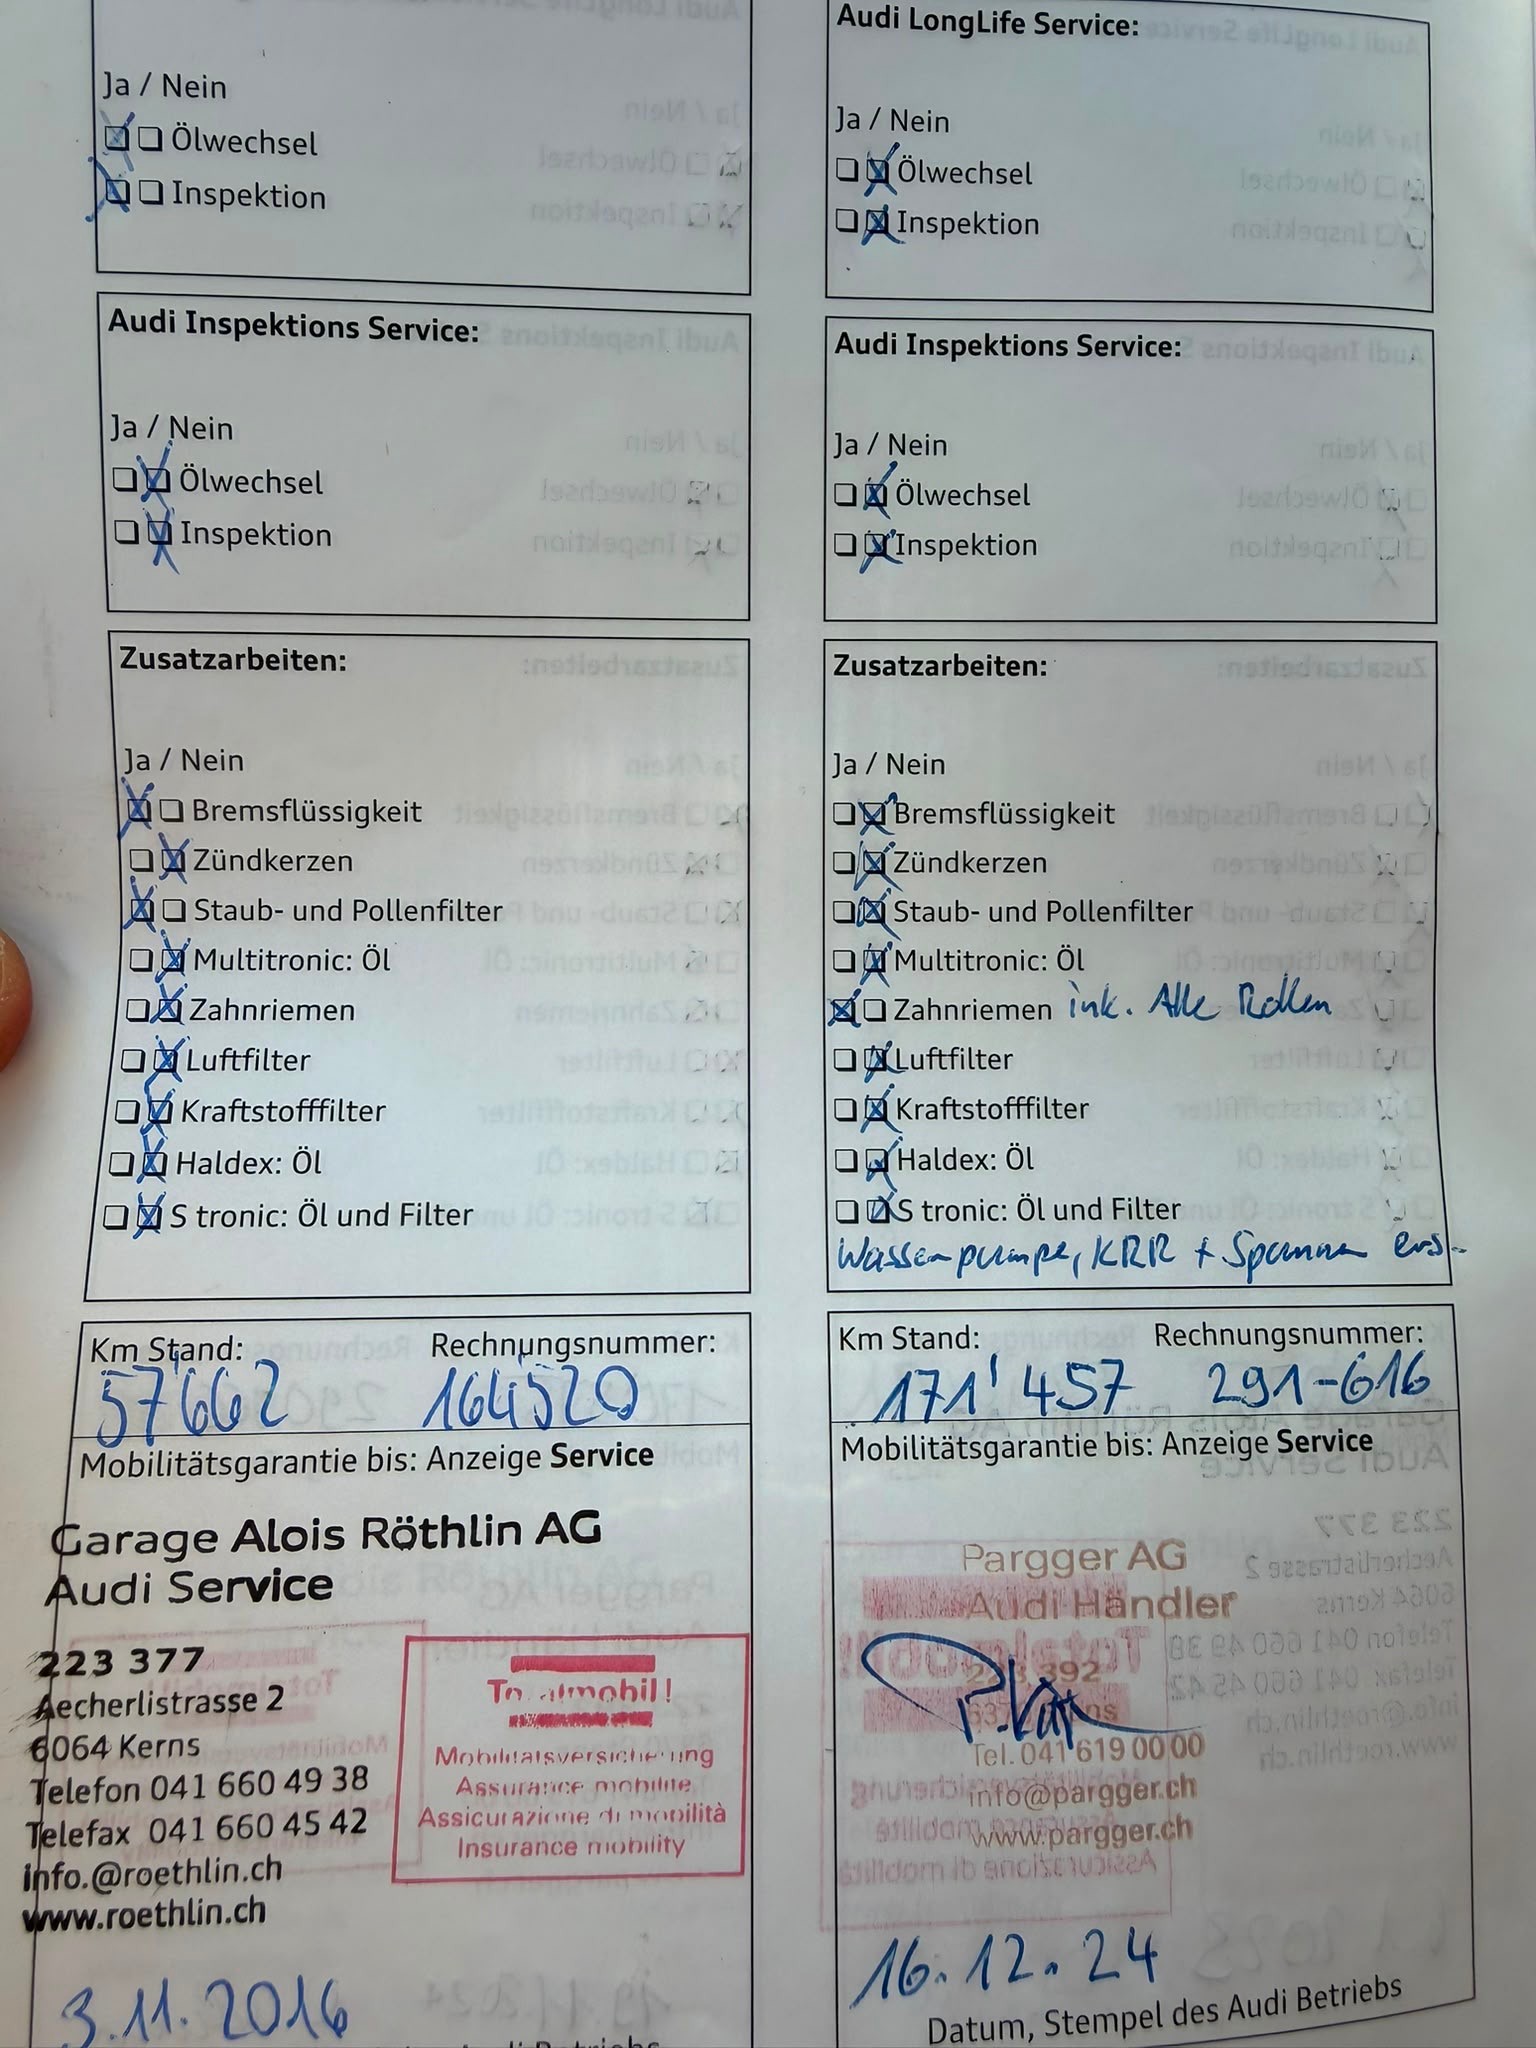 Ja / Nein
Ölwechsel
Inspektion
Audi Inspektions Service:
Ja / Nein
Ölwechsel
Inspektion
Zusatzarbeiten:
Ja / Nein
Bremsflüssigkeit
Zündkerzen
Staub- und Pollenfilter
Multitronic: Öl
Zahnriemen
Luftfilter
Kraftstofffilter
Haldex: Öl
S tronic: Öl und Filter
Km Stand: Rechnungsnummer:
57'662 164520
Mobilitätsgarantie bis: Anzeige Service
Garage Alois Röthlin AG
Audi Service
223 377
Aecherlistrasse 2
6064 Kerns
Telefon 041 660 49 38
Telefax 041 660 45 42
info.@roethlin.ch
www.roethlin.ch
Totalmobil!
Mobilitätsversicherung
Assurance mobilité
Assicurazione di mobilità
Insurance mobility
3.11.2016
Audi LongLife Service:
Ja / Nein
Ölwechsel
Inspektion
Audi Inspektions Service:
Ja / Nein
Ölwechsel
Inspektion
Zusatzarbeiten:
Ja / Nein
Bremsflüssigkeit
Zündkerzen
Staub- und Pollenfilter
Multitronic: Öl
Zahnriemen ink. Alle Rollen
Luftfilter
Kraftstofffilter
Haldex: Öl
S tronic: Öl und Filter
Wasserpumpe, KRR + Spanner ers.
Km Stand: Rechnungsnummer:
171'457 291-616
Mobilitätsgarantie bis: Anzeige Service
Pargger AG
Audi Händler
392
Tel. 041 619 00 00
info@pargger.ch
www.pargger.ch
16.12.24
Datum, Stempel des Audi Betriebs